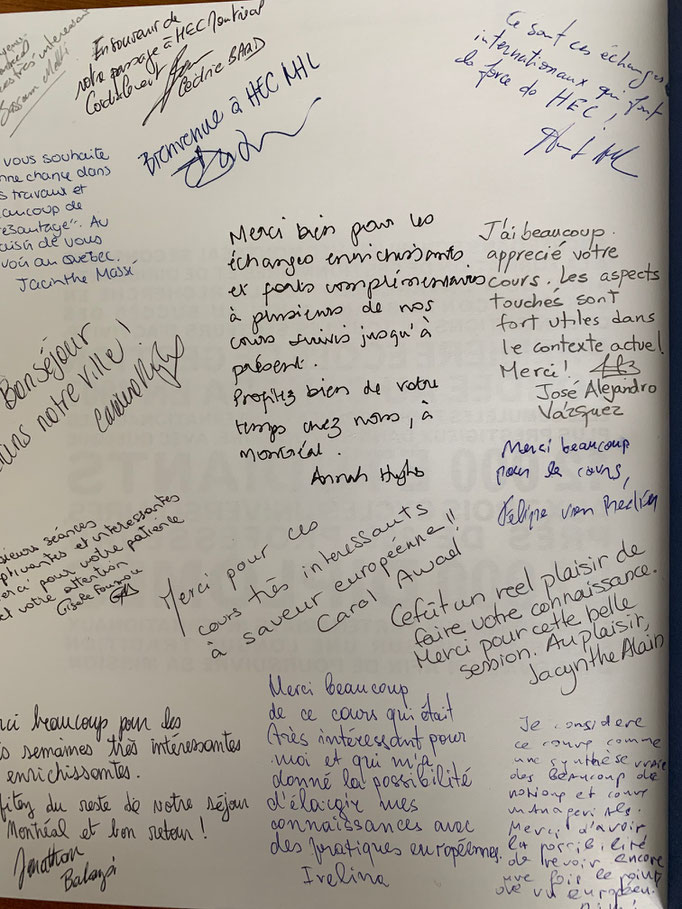 très intéressant
En souvenir de
votre passage à HEC Montréal
Cordialement
Cédric
Bienvenue à HEC MTL
Ce sont ces échanges
internationaux qui font
la force de HEC!
vous souhaite
chance dans
travaux et
de
Au
de vous
au Québec.
Jacinthe Massé
Bon séjour
notre ville!
Merci bien pour les
échanges enrichissants
et forts complémentaires
à plusieurs de nos
cours suivis jusqu'à
présent.
Profitez bien de votre
temps chez nous, à
Montréal.
Annah
J'ai beaucoup
apprecié votre
cours. Les aspects
touchés sont
fort utiles dans
le contexte actuel
Merci!
José Alejandro
Vázquez
Merci beaucoup
pour le cours,
Felipe von
séances
et intéressantes
pour votre patience
et votre attention
Merci pour ces
cours très interessants
à saveur européenne!!
Carol Awad
Ce fût un reel plaisir de
faire votre connaissance.
Merci pour cette belle
session. Au plaisir,
Jacynthe Alain
beaucoup pour les
semaines très intéressantes
enrichissantes.
du reste de votre séjour
Montréal et bon retour!
Jonathan
Merci beaucoup
de ce cours qui était
très intéressant pour
moi et qui m'a
donné la possibilité
d'élargir mes
connaissances avec
des pratiques européennes.
Irelina
Je considere
ce cours comme
une synthèse vraie
des beaucoup de
notions et cours
Merci d'avoir
la possibilité
de revoir encore
une fois le point
de vu européen.